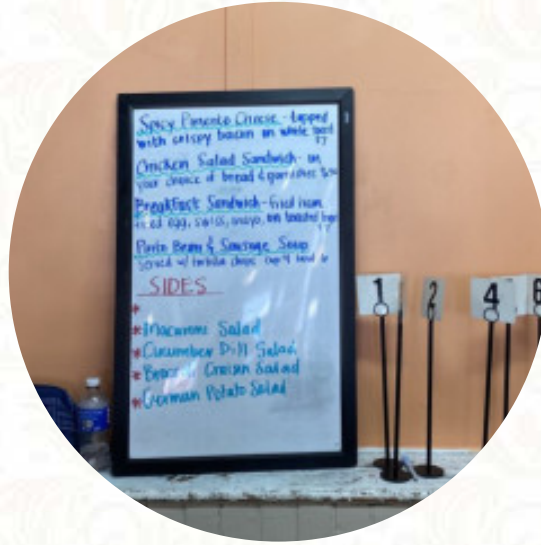 Spicy Pimento Cheese - topped
with crispy bacon on white
Chicken Salad Sandwich - on
your choice of bread & garnishes
Breakfast Sandwich - fried ham
fried egg, swiss, mayo, on toasted
Pinto Bean & Sausage Soup
Served w/ tortilla chips cup 4 bowl 6
SIDES
*
* Macaroni Salad
* Cucumber Dill Salad
* Broccoli Craisin Salad
* German Potato Salad
1
2
4
6